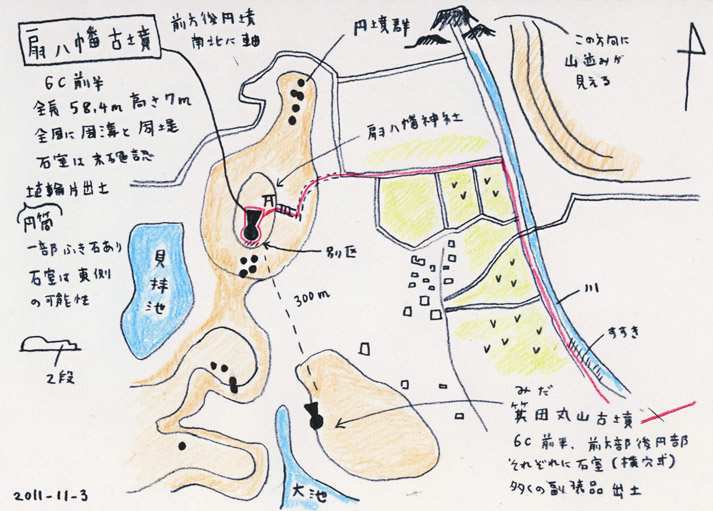 扇八幡古墳
6C前半
全長58.4m 高さ7m
全周に周溝と周堤
石室は未確認
埴輪片出土
円筒
一部ふき石あり
石室は東側
の可能性
2段
前方後円墳
南北に軸
円墳群
扇八幡神社
この方向に
山並みが
見える
見拝池
別区
300m
川
すすき
みだ
箕田丸山古墳
6C前半、前方部後円部
それぞれに石室(横穴式)
多くの副葬品出土
大池
2011-11-3